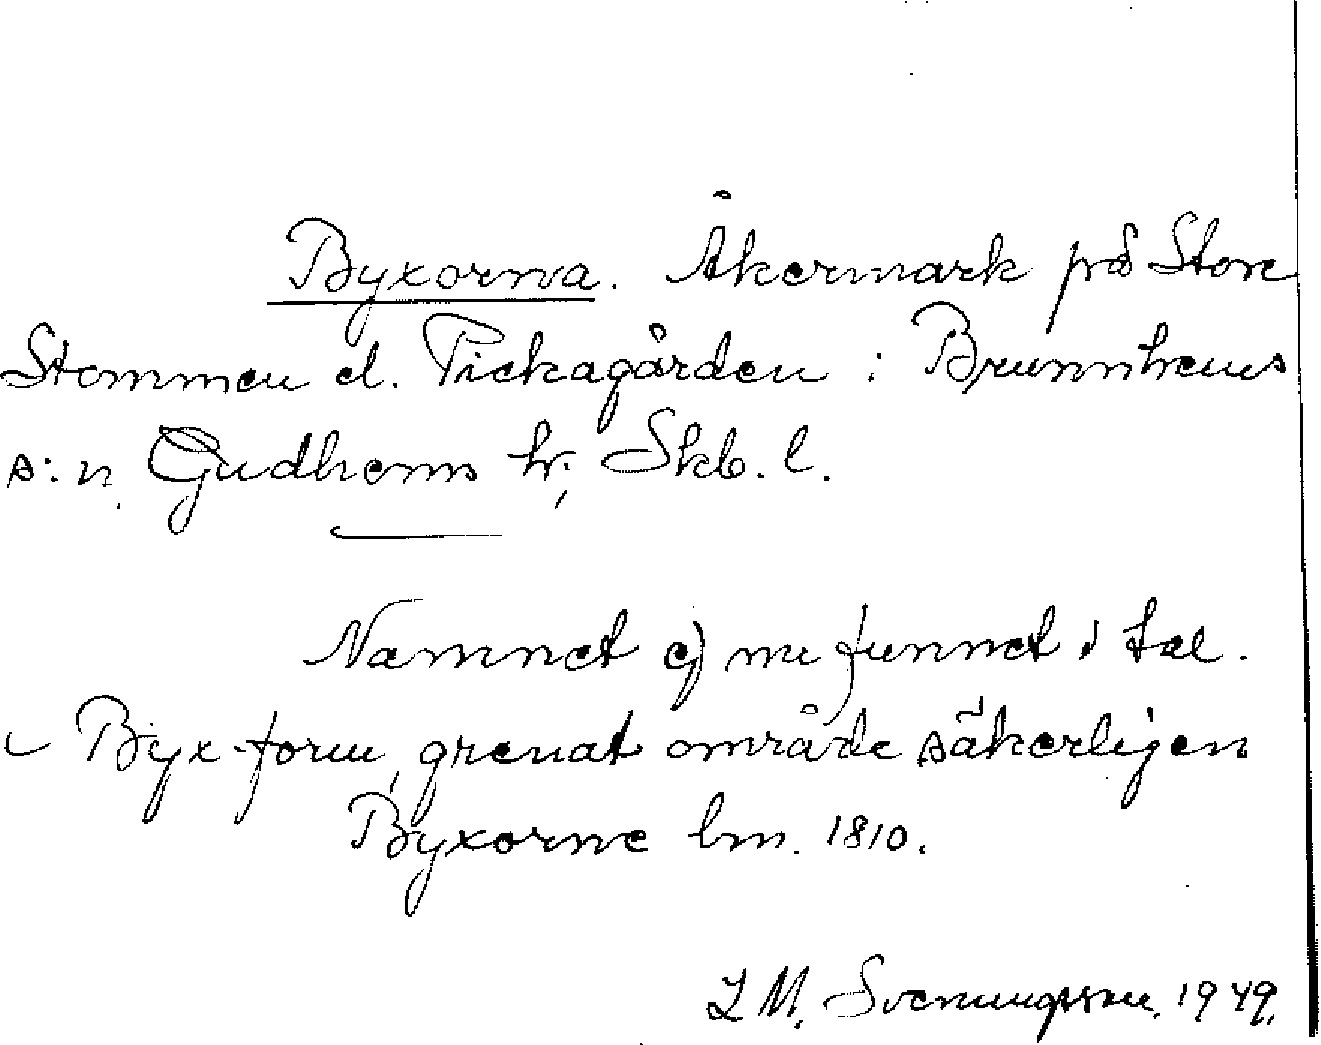 Byxorna. Åkermark på Store
Stommen el. Pickagården i Brunnhems
s:n. Gudhems hr, Skb. l.
Namnet ej nu funnet i tal.
Byx-form, grenat område säkerligen
Byxorne lm. 1810.
L M. Svenungsson. 1949.